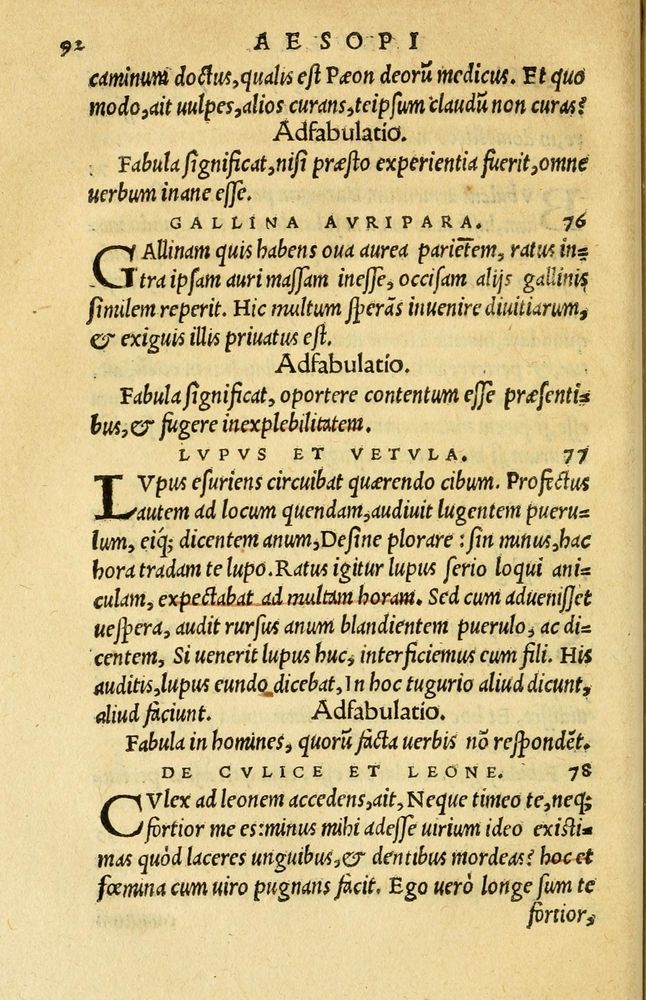 92 AESOPI
caminum doctus, qualis est Pæon deorũ medicus. Et quo
modo, ait uulpes, alios curans, teipsum claudũ non curas?
Adfabulatio.
Fabula significat, nisi præsto experientia fuerit, omne
uerbum inane esse.
GALLINA AVRIPARA. 76
GAllinam quis habens oua aurea pariẽtem, ratus in=
tra ipsam auri massam inesse, occisam alijs gallinis
similem reperit. Hic multum sperãs inuenire diuitiarum,
& exiguis illis priuatus est.
Adfabulatio.
Fabula significat, oportere contentum esse præsenti=
bus, & fugere inexplebilitatem.
LVPVS ET VETVLA. 77
LVpus esuriens circuibat quærendo cibum. Profectus
autem ad locum quendam, audiuit lugentem pueru=
lum, eiq́; dicentem anum, Desine plorare: sin minus, hac
hora tradam te lupo. Ratus igitur lupus serio loqui ani=
culam, expectabat ad multam horam. Sed cum aduenisset
uespera, audit rursus anum blandientem puerulo, ac di=
centem, Si uenerit lupus huc, interficiemus eum fili. His
auditis, lupus eundo dicebat, In hoc tugurio aliud dicunt,
aliud faciunt. Adfabulatio.
Fabula in homines, quorũ facta uerbis nõ respondẽt.
DE CVLICE ET LEONE. 78
CVlex ad leonem accedens, ait, Neque timeo te, neq;
fortior me es: minus mihi adesse uirium ideo existi=
mas quòd laceres unguibus, & dentibus mordeas? hoc et
fœmina cum uiro pugnans facit. Ego uerò longe sum te
fortior,